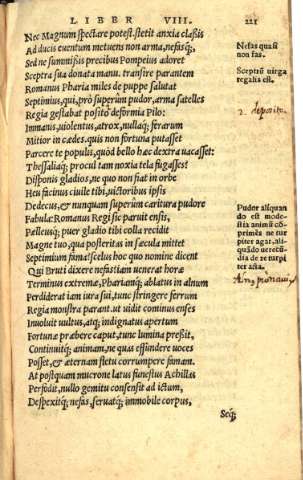 LIBER VIII. 221
Nec Magnum spectare potest. stetit anxia classis
Ad ducis euentum metuens non arma, nefasq́;,
Sed ne summissis precibus Pompeius adoret
Sceptra sua donata manu. transire parantem
Romanus Pharia miles de puppe salutat
Septimius, qui, prô superûm pudor, arma satelles
Regia gestabat posito deformia Pilo:
Immanis, uiolentus, atrox, nullaq́; ferarum
Mitior in cædes. quis non fortuna putasset
Parcere te populis, quòd bello hæc dextra uacasset:
Thessaliaq́; procul tam noxia tela fugasses?
Disponis gladios, ne quo non fiat in orbe
Heu facinus ciuile tibi, uictoribus ipsis
Dedecus, & nunquam superûm caritura pudore
Fabula: Romanus Regi sic paruit ensis,
Pellæusq́; puer gladio tibi colla recidit
Magne tuo, qua posteritas in sæcula mittet
Septimium fama? scelus hoc quo nomine dicent
Qui Bruti dixere nefas? iam uenerat horæ
Terminus extremæ, Phariamq́; ablatus in alnum
Perdiderat iam iura sui, tunc stringere ferrum
Regia monstra parant. ut uidit cominus enses
Inuoluit uultus, atq́; indignatus apertum
Fortunæ præbere caput, tunc lumina pressit,
Continuitq́; animam, ne quas effundere uoces
Posset, & æternam fletu corrumpere famam.
At postquam mucrone latus funestus Achillas
Perfodit, nullo gemitu consensit ad ictum,
Despexitq́; nefas, seruatq́; immobile corpus,
Seq́;
Nefas quasi
non fas.
Sceptrũ uirga
regalis est.
2. deposito
Pudor aliquan
do est mode-
stia animi cõ
primẽs ne tur
piter agat, ali-
quãdo uerecũ
dia de re turpi
ter acta.